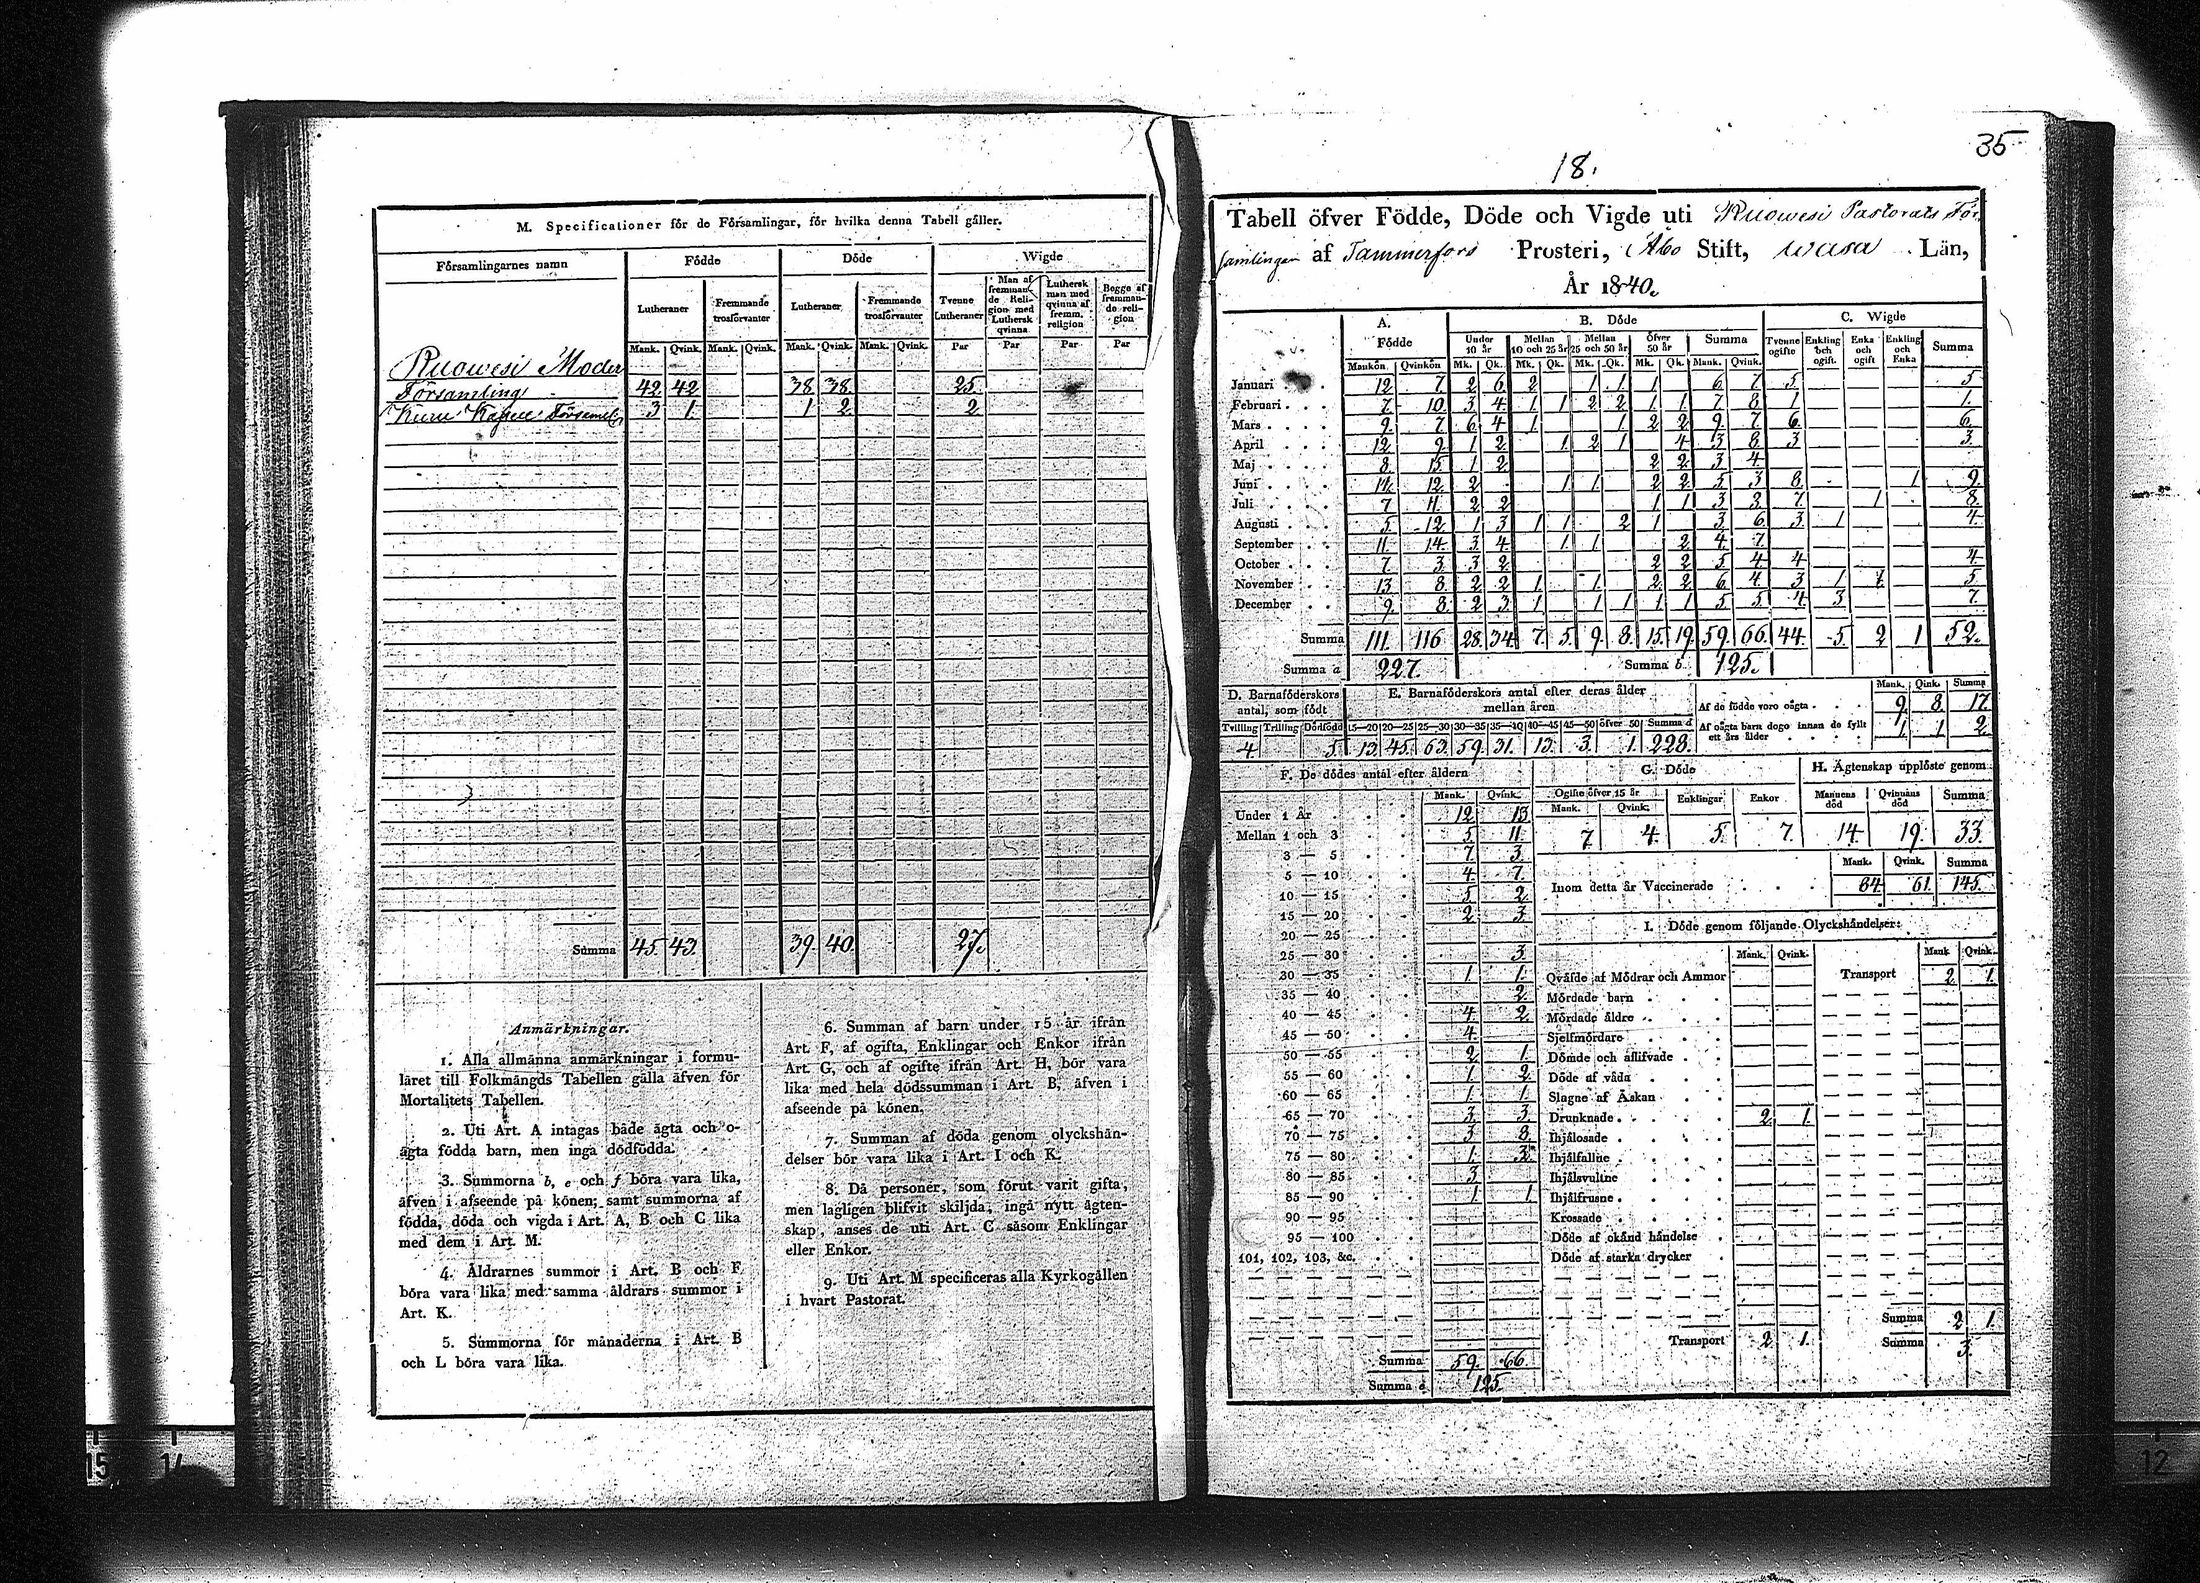 M. Specificationer för de Församlingar, för hvilka denna Tabell gäller.
Församlingarnes namn Födde Döde Wigde
Lutheraner Fremmande trosförvanter Lutheraner Fremmande trosförvanter Tvenne Lutheraner Man af fremmande Religion med Luthersk qvinna Luthersk man med qvinna af fremm. religion Begge af fremmande religion
Mank. Qvink. Mank. Qvink. Mank. Qvink. Mank. Qvink. Par Par Par Par
Ruowesi Moder
Församling 42 42 38 38 25
Kuru Kapell Församl. 3 1 1 2 2
Summa 45 43 39 40 27
Anmärkningar.
1. Alla allmänna anmärkningar i formu-
läret till Folkmängds Tabellen gälla äfven för
Mortalitets Tabellen.
2. Uti Art. A intagas både ägta och o-
ägta födda barn, men inga dödfödda.
3. Summorna b, e och f böra vara lika,
äfven i afseende på könen; samt summorna af
födda, döda och vigda i Art. A, B och C lika
med dem i Art. M.
4. Åldrarnes summor i Art. B och F
böra vara lika med samma åldrars summor i
Art. K.
5. Summorna för månaderna i Art. B
och L böra vara lika.
6. Summan af barn under 15 år ifrån
Art. F, af ogifta, Enklingar och Enkor ifrån
Art. G, och af ogifte ifrån Art. H, bör vara
lika med hela dödssumman i Art. B, äfven i
afseende på könen.
7. Summan af döda genom olyckshän-
delser bör vara lika i Art. I och K.
8. Då personer, som förut varit gifta,
men lagligen blifvit skiljda, ingå nytt ägten-
skap, anses de uti Art. C såsom Enklingar
eller Enkor.
9. Uti Art. M specificeras alla Kyrkogällen
i hvart Pastorat.
35
18.
Tabell öfver Födde, Döde och Vigde uti Ruowesi Pastorats För
samlingar af Tammerfors Prosteri, Åbo Stift, Wasa Län,
År 1840.
A. Födde B. Döde C. Wigde
Under 10 år Mellan 10 och 25 år Mellan 25 och 50 år Öfver 50 år Summa Tvenne ogifte Enkling och ogift Enka och ogift Enkling och Enka Summa
Mankön Qvinkön Mk. Qk. Mk. Qk. Mk. Qk. Mk. Qk. Mank. Qvink.
Januari 12 7 2 6 2 1 1 1 6 7 5 5
Februari 7 10 3 4 1 1 2 2 1 1 7 8 1 1
Mars 9 7 6 4 1 1 2 2 9 7 6 6
April 12 9 1 2 1 2 1 4 3 8 3 3
Maj 8 15 1 2 2 2 3 4
Juni 11 12 2 1 1 2 2 5 3 8 1 9
Juli 7 11 2 2 1 1 3 3 7 1 8
Augusti 5 12 1 3 1 1 2 1 3 6 3 1 4
September 11 14 3 4 1 1 2 4 7
October 7 3 3 2 2 2 5 4 4 4
November 13 8 2 2 1 1 2 2 6 4 3 1 1 5
December 9 8 2 3 1 1 1 1 1 5 5 4 3 7
Summa 111 116 28 34 7 5 9 8 15 19 59 66 44 5 2 1 52
Summa a 227 Summa b 125
D. Barnaföderskors antal, som födt
Tvilling Trilling Dödfödd
4 5
E. Barnaföderskors antal efter deras ålder mellan åren
15—20 20—25 25—30 30—35 35—40 40—45 45—50 öfver 50 Summa d
13 45 63 59 31 13 3 1 228
Mank. Qink. Summa
Af de födde voro oägta 9 8 17
Af oägta barn dogo innan de fyllt ett års ålder 1 1 2
F. De dödes antal efter åldern
Mank. Qvink.
Under 1 År 12 13
Mellan 1 och 3 5 11
3 — 5 7 3
5 — 10 4 7
10 — 15 5 2
15 — 20 2 3
20 — 25
25 — 30 3
30 — 35 1 1
35 — 40 2
40 — 45 4 2
45 — 50 4
50 — 55 2 1
55 — 60 1 2
60 — 65 1 1
65 — 70 3 3
70 — 75 3 8
75 — 80 1 3
80 — 85 3
85 — 90 1 1
90 — 95
95 — 100
101, 102, 103, &c.
Summa 59 66
Summa e 125
G. Döde
Ogifte öfver 15 år Enklingar Enkor
Mank. Qvink.
7 4 5 7
H. Ägtenskap upplöste genom
Mannens död Qvinnans död Summa
14 19 33
Mank. Qvink. Summa
Inom detta år Vaccinerade 84 61 145
I. Döde genom följande Olyckshändelser:
Mank. Qvink. Mank Qvink.
Qväfde af Mödrar och Ammor Transport 2 1
Mördade barn
Mördade äldre
Sjelfmördare
Dömde och aflifvade
Döde af våda
Slagne af Åskan
Drunknade 2 1
Ihjälosade
Ihjälfallne
Ihjälsvultne
Ihjälfrusne
Krossade
Döde af okänd händelse
Döde af starka drycker
Summa 2 1
Transport 2 1 Summa 3
15 14
12